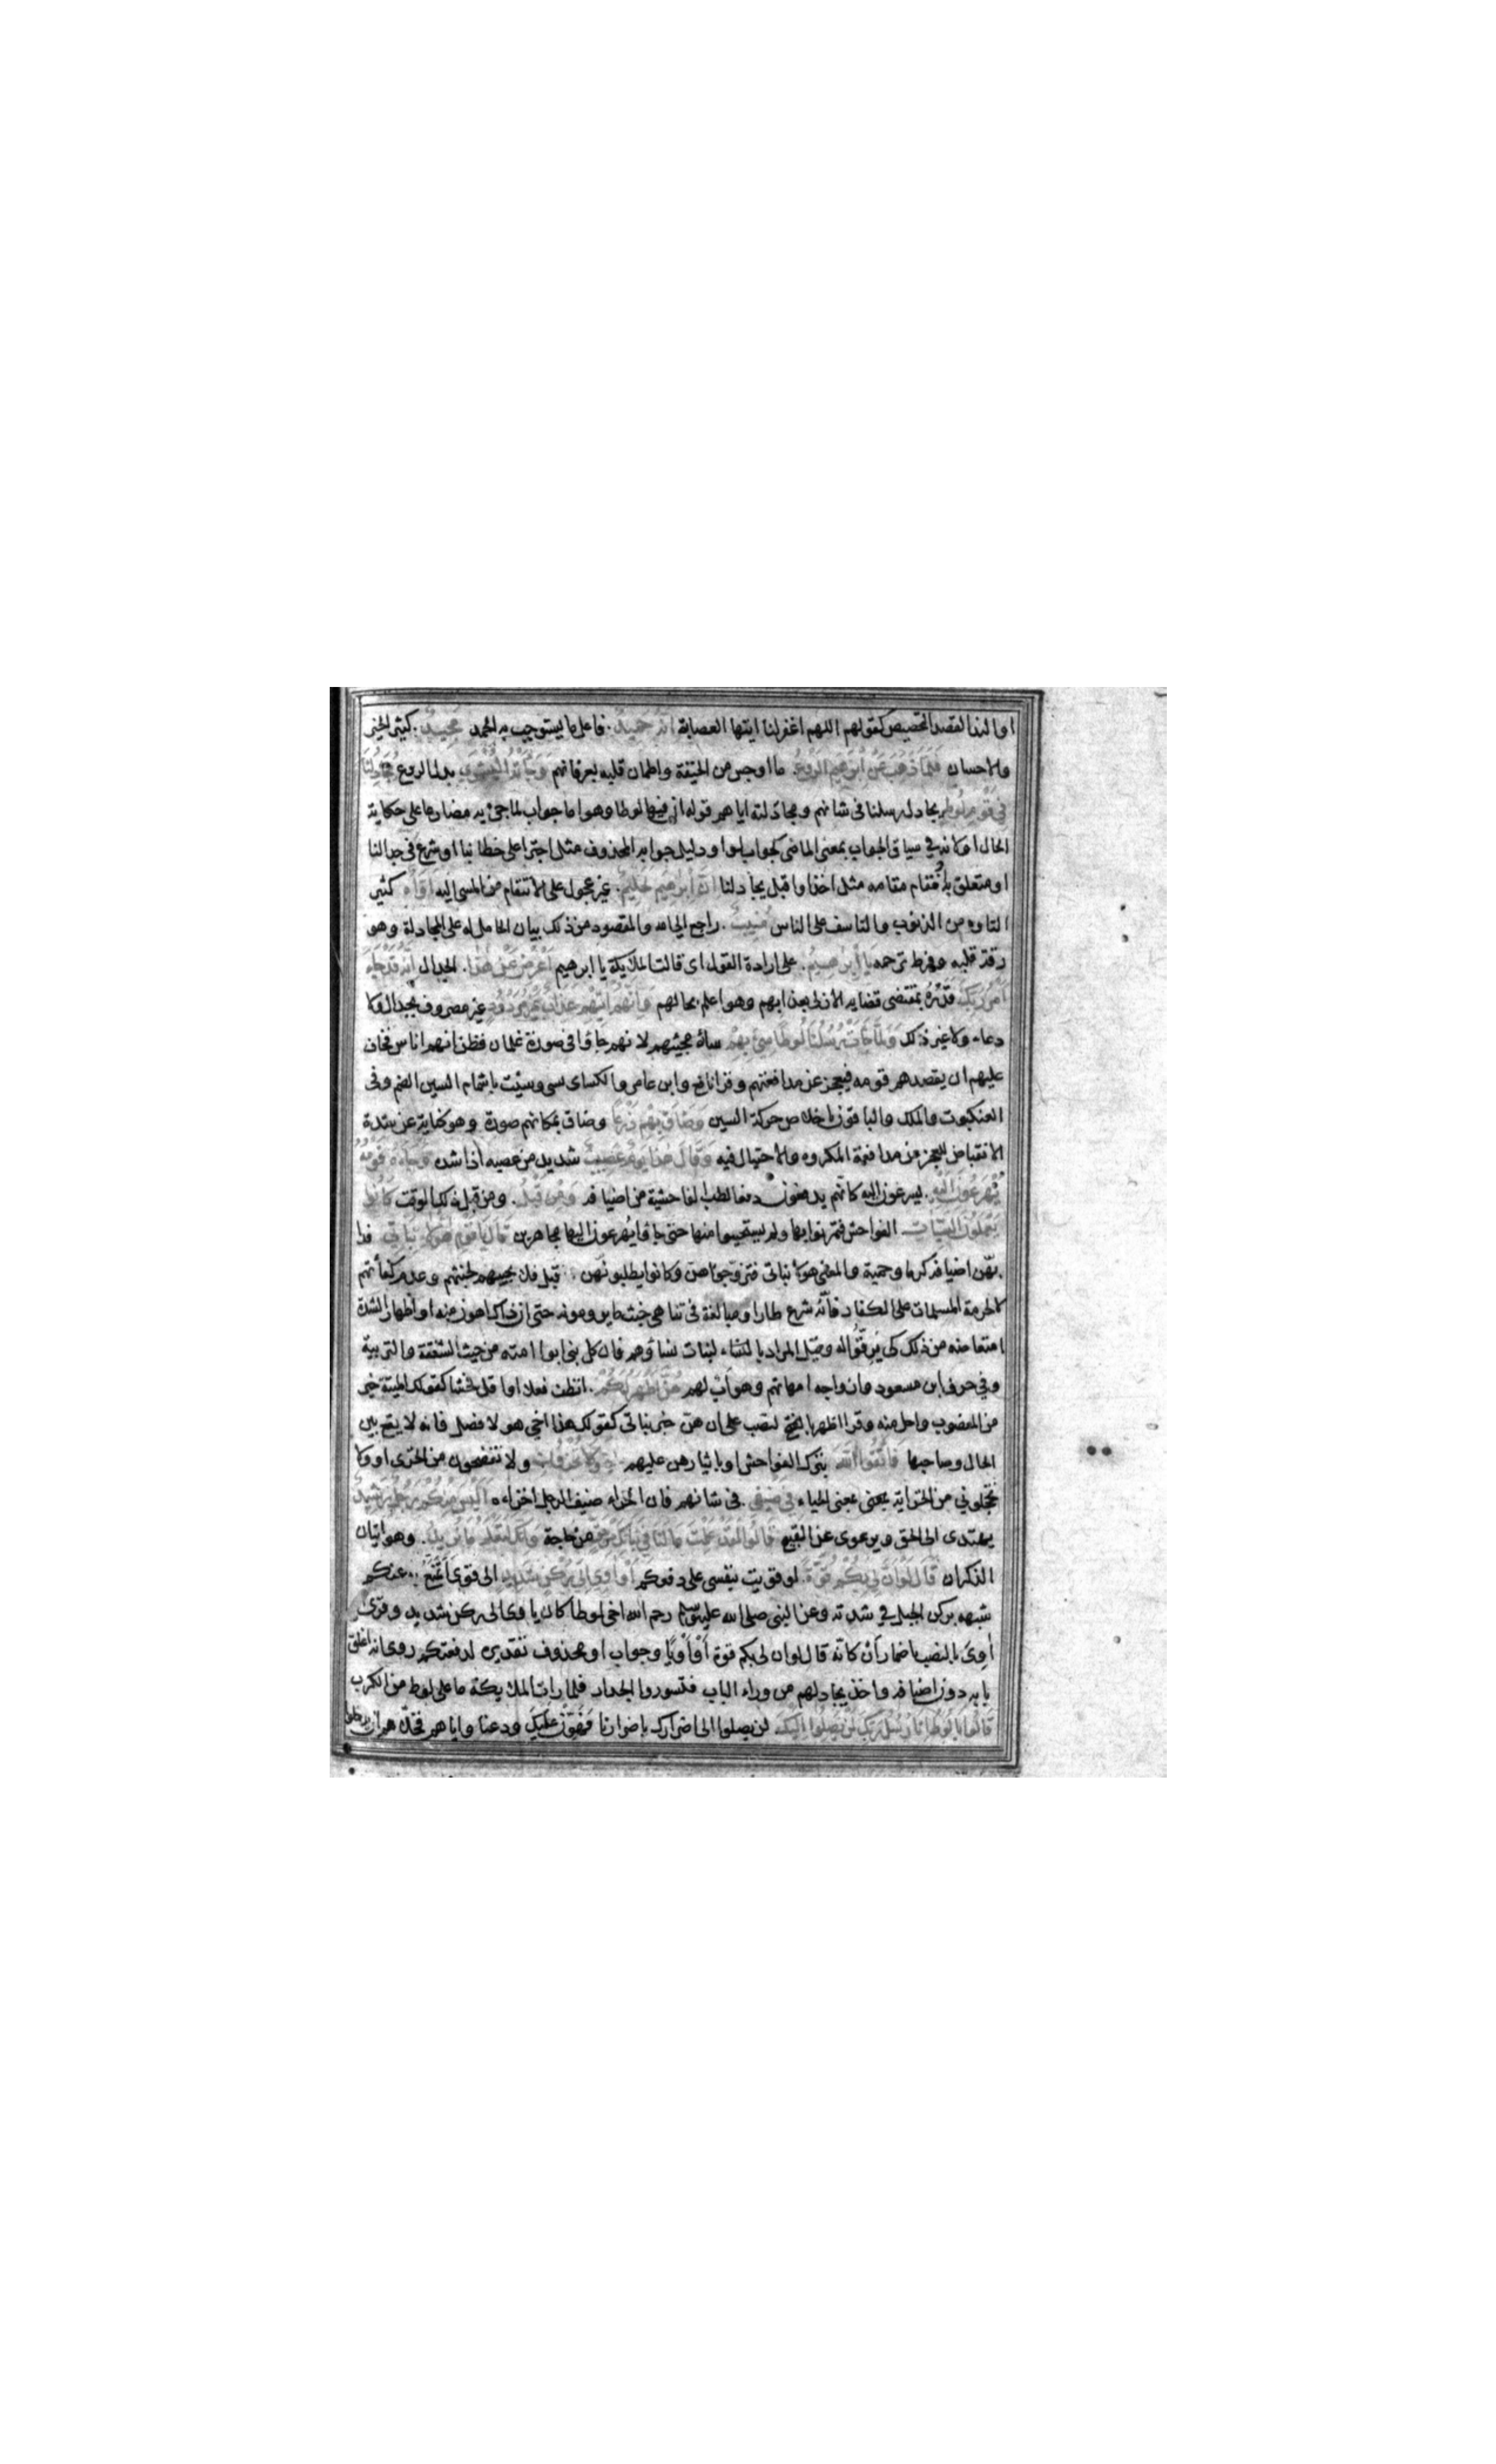 او النداء لقصد التخصيص كقولهم اللهم اغفر لنا ايتها العصابة انه حميد . فاعل ما يستوجب به الحمد مجيد . كثير الخير
والاحسان فلما ذهب عن ابرهيم الروع . ما اوجس من الخيفة واطمان قلبه بعرفانهم وجاءته البشرى بدل الروع يجادلنا
في قوم لوط يجادل رسلنا فى شانهم ومجادلته اياهم قوله ان فيها لوطا وهو اما جواب لما جئ به مضارعا على حكاية
الحال او لانه في سياق الجواب بمعنى الماضى كجواب لو او دليل جوابه المحذوف مثل اجترا على خطابنا او شرع فى جدالنا
او متعلق به اقيم مقامه مثل اخذ او اقبل يجادلنا ان ابرهيم لحليم . غير عجول على الانتقام من المسى اليه اواه كثير
التاوه من الذنوب والتاسف على الناس منيب . راجع الى الله والمقصود من ذلك بيان الحامل له على المجادلة وهو
رقة قلبه وفرط ترحمه يا ابرهيم . على ارادة القول اى قالت الملائكة يا ابرهيم اعرض عن هذا . الجدال انه قد جاء
امر ربك قدره بمقتضى قضايه الازلى بعذابهم وهو اعلم بحالهم وانهم اتيهم عذاب غير مردود غير مصروف بجدال ولا
دعاء ولا غير ذلك ولما جاءت رسلنا لوطا سئ بهم ساءه مجيئهم لانهم جاؤا فى صورة غلمان فظن انهم اناس فخاف
عليهم ان يقصدهم قومه فيعجز عن مدافعتهم وقرا نافع وابن عامر والكساى سى وسيئت باشمام السين الضم وفى
العنكبوت والملك والباقون باخلاص حركة السين وضاق بهم ذرعا وضاق بمكانهم صدره وهو كناية عن شدة
الانقباض للعجز عن مدافعة المكروه والاحتيال فيه وقال هذا يوم عصيب شديد من عصبه اذا شده وجاءه قومه
يهرعون اليه . يسرعون اليه كانهم يدفعون دفعا لطلب الفاحشة من اضيافه ومن قبل . ومن قبل ذلك الوقت كانوا
يعملون السيات الفواحش فتمرنوا بها ولم يستحيوا منها حتى جاؤا يهرعون اليها مجاهرين قال يا قوم هؤلاء بناتى فدا
بهن اضيافه كرما وحمية والمعنى هؤلاء بناتى فتزوجوهن وكانوا يطلبونهن قبل فلا يجيبهم لخبثهم وعدم كفاءتهم
لا لحرمة المسلمات على الكفار فانه شرع طار او مبالغة فى تناهى خبث ما يرومونه حتى ان ذاك اهون منه او اظهار الشدة
امتعاضه من ذلك كى يرقوا له وقيل المراد بالبنات نساؤهم فان كل نبى ابو امته من حيث الشفقة والتربية
وفي حرف ابن مسعود وازواجه امهاتهم وهو اب لهم هن اطهر لكم . انظف فعلا او اقل فحشا كقولك الميتة خير
من المغصوب واحل منه وقرا اطهر بالفتح لنصب على ان هن خبر بناتى كقولك هذا اخى هو لا فصل فانه لا يقع بين
الحال وصاحبها فاتقوا الله بترك الفواحش او بايثارهن عليهم ولا تخزون ولا تفضحون من الخزى او ولا
تخجلونى من الخزاية بمعنى الحياء فى ضيفى . فى شانهم فان اخزاء ضيف الرجل اخزاءه اليس منكم رجل رشيد
يهتدى الى الحق ويرعوى عن القبيح قالوا لقد علمت ما لنا في بناتك من حق من حاجة وانك لتعلم ما نريد . وهو اتيان
الذكران قال لو ان لي بكم قوة . لو قويت بنفسى على دفعكم او آوى الى ركن شديد الى قوى اتمنع به عنكم
شبهه بركن الجبل في شدته وعن النبى صلى الله عليه وسلم رحم الله اخى لوطا كان ياوى الى ركن شديد وقرئ
اوى بالنصب باضمار ان كانه قال لو ان لى بكم قوة او اويا وجواب لو محذوف تقديره لدفعتكم روى انه اغلق
بابه دون اضيافه واخذ يجادلهم من وراء الباب فتسوروا الجدار فلما رات الملايكة ما على لوط من الكرب
قالوا يا لوط انا رسل ربك لن يصلوا اليك . لن يصلوا الى اضرارك باضرارنا فهون عليك ودعنا واياهم فخلاهم ان يدخلوا